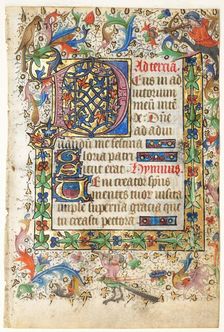 Ad tercia
Deus in ad
iutorium
meū inte
de Dn̄e
ad adiu
uandū me festina
Gloria patri
sicut erat Hymnus
Veni creator spūs
mentes tuor visita
imple superna gracia
que tu creasti pectora